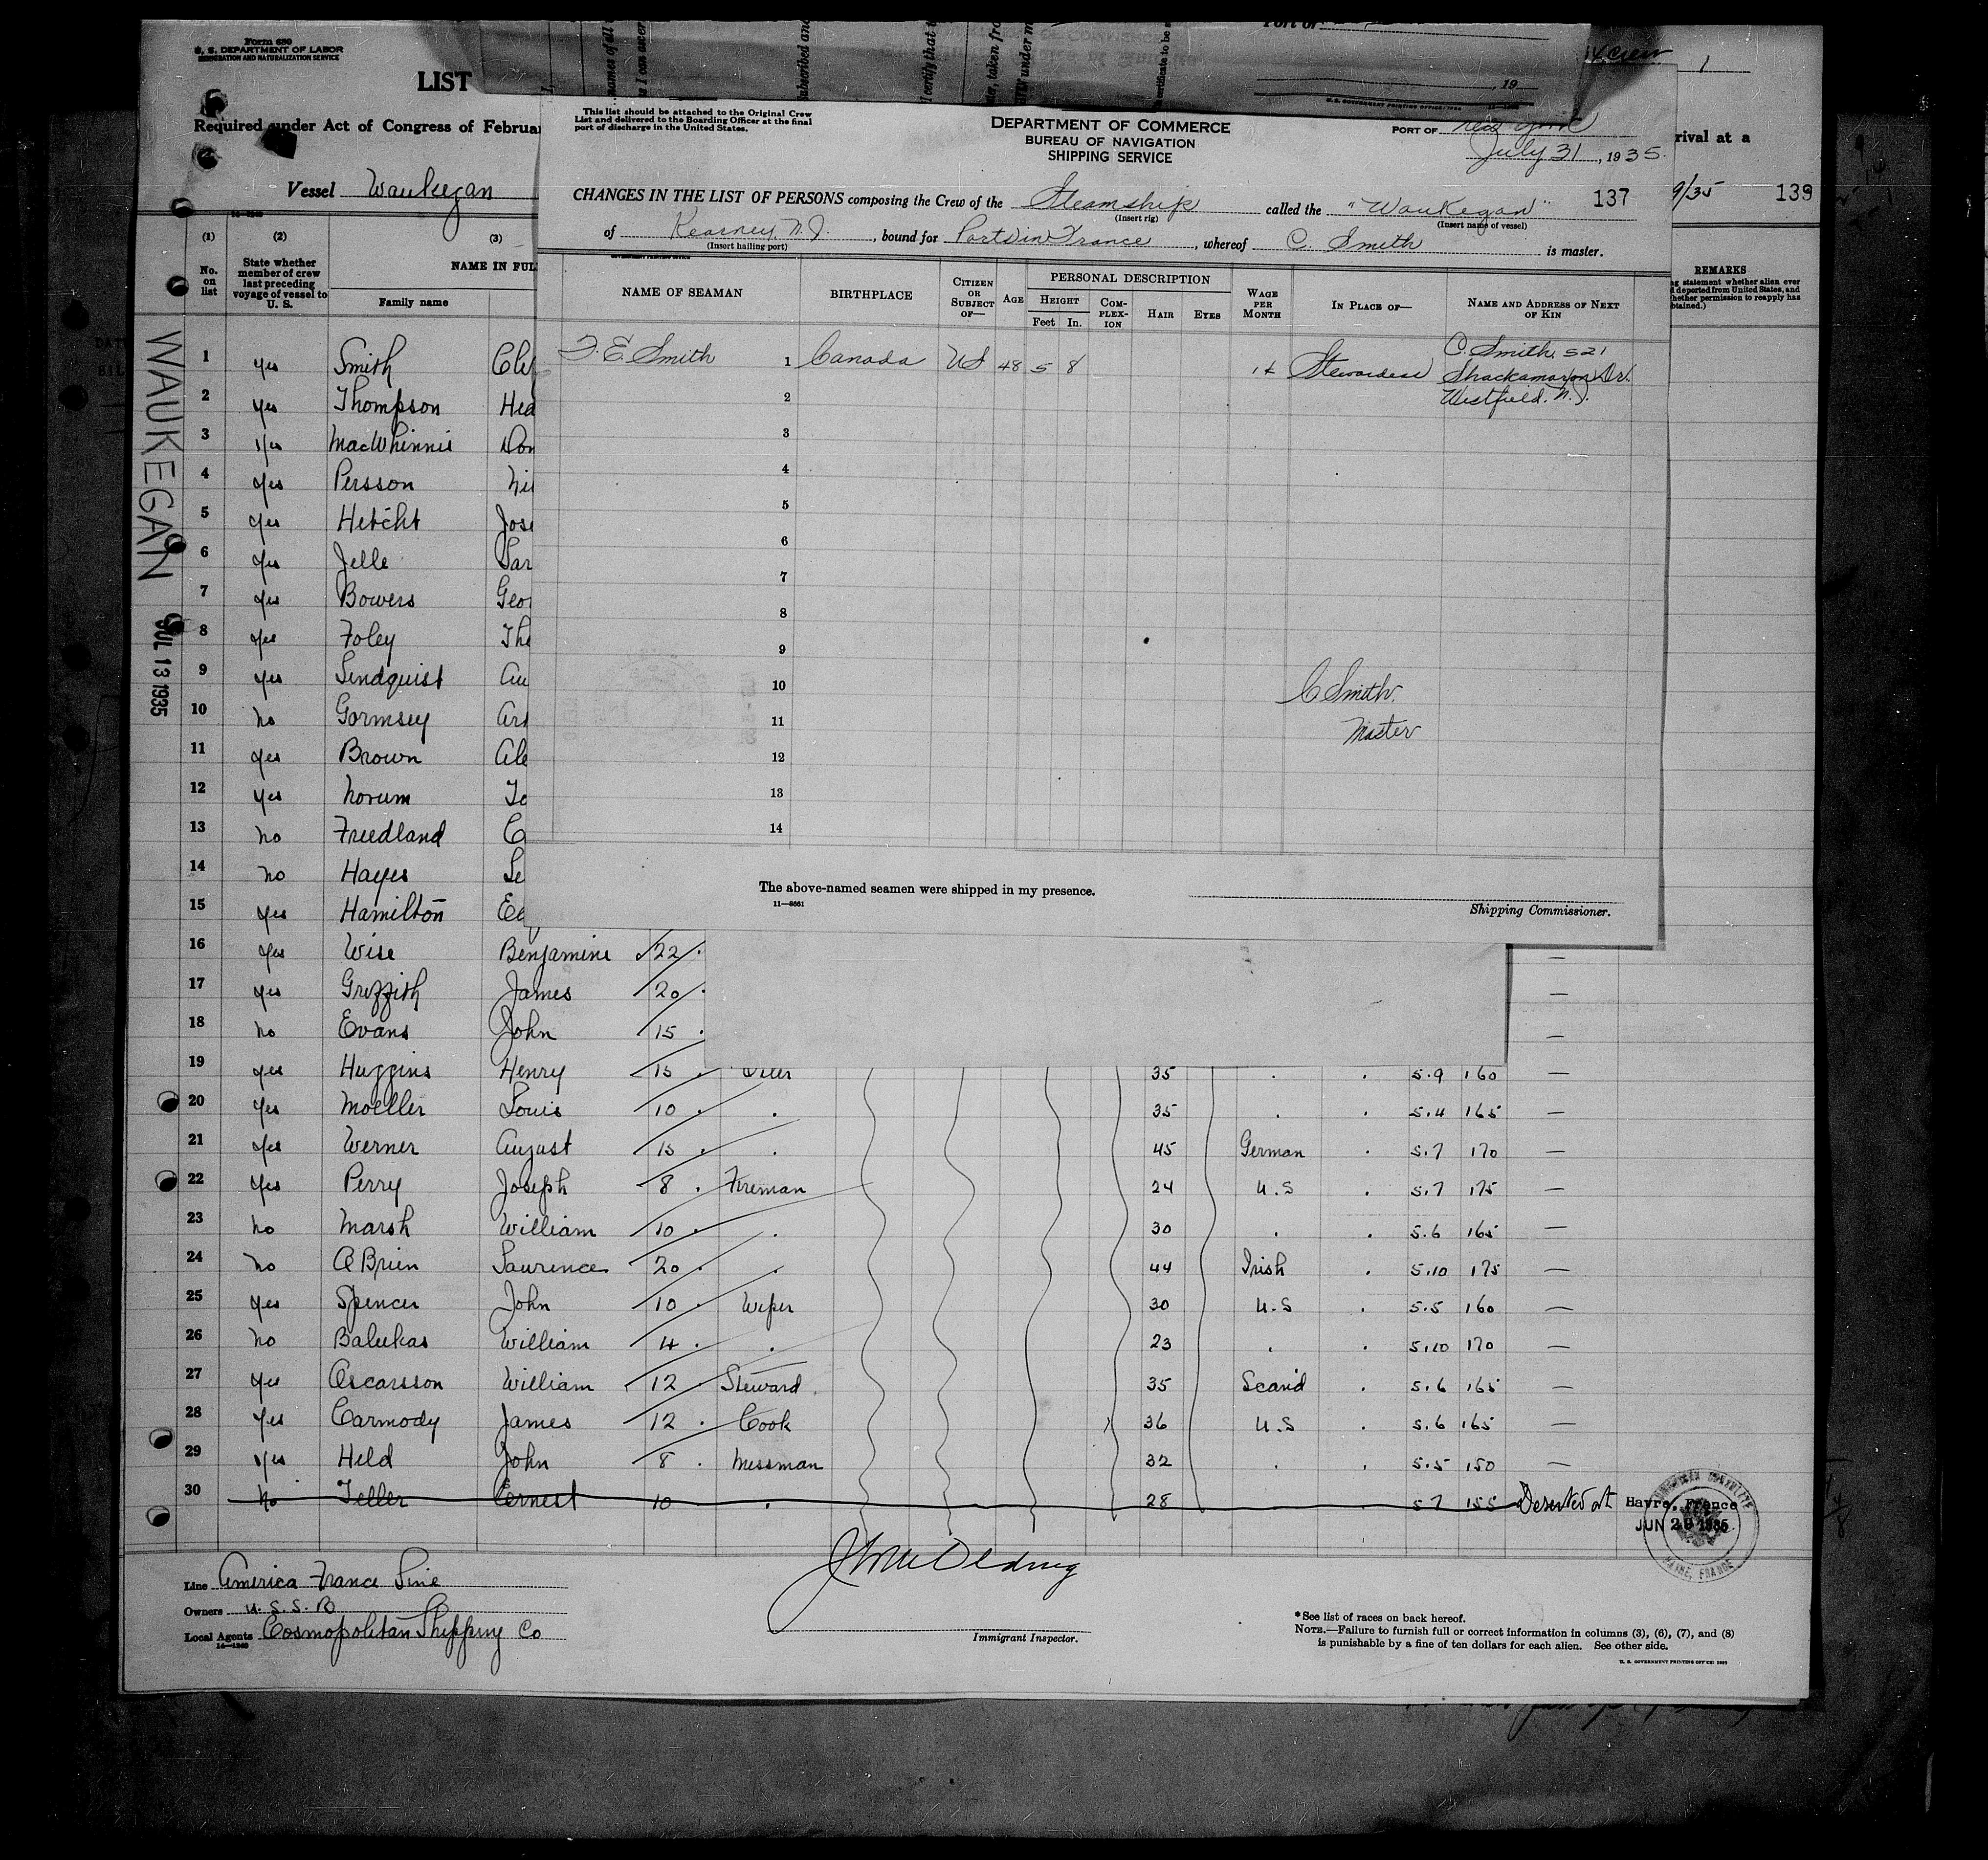 Form 680
U. S. DEPARTMENT OF LABOR
IMMIGRATION AND NATURALIZATION SERVICE
LIST
Required under Act of Congress of Februa
Vessel Waukegan
rival at a
9/35 139
(1) (2) (3)
No. on list
State whether member of crew last preceding voyage of vessel to U. S.
NAME IN FUL
Family name
REMARKS
WAUKEGAN
JUL 13 1935
This list should be attached to the Original Crew
List and delivered to the Boarding Officer at the final
port of discharge in the United States.
DEPARTMENT OF COMMERCE
BUREAU OF NAVIGATION
SHIPPING SERVICE
PORT OF New York
July 31, 1935.
CHANGES IN THE LIST OF PERSONS composing the Crew of the Steamship called the "Waukegan" 137
(Insert rig) (Insert name of vessel)
of Kearney, N.J., bound for Ports in France, whereof C. Smith is master.
(Insert hailing port)
NAME OF SEAMAN BIRTHPLACE CITIZEN OR SUBJECT OF— AGE PERSONAL DESCRIPTION WAGE PER MONTH IN PLACE OF— NAME AND ADDRESS OF NEXT OF KIN
HEIGHT COMPLEXION HAIR EYES
Feet In.
E. Smith 1 Canada US 48 5 8 Stewardess C. Smith, 521
Shackamaxon Dr.
Westfield. N.J.
2
3
4
5
6
7
8
9
10 C Smith.
11 Master
12
13
14
The above-named seamen were shipped in my presence.
11—8661
Shipping Commissioner.
1 yes Smith
2 yes Thompson
3 yes MacWhinnie
4 yes Persson
5 yes Hetcht
6 yes Jelle
7 yes Bowers
8 yes Foley
9 yes Lindquist
10 no Gormsey
11 yes Brown
12 yes Norum
13 no Freedland
14 no Hayes
15 yes Hamilton
16 yes Wise Benjamine 22 —
17 yes Griffith James 20 —
18 no Evans John 15 —
19 yes Huggins Henry 15 35 5.9 160 —
20 yes Moeller Louis 10 35 5.4 165 —
21 yes Werner August 15 45 German 5.7 170 —
22 yes Perry Joseph 8 Fireman 24 U.S 5.7 175 —
23 no Marsh William 10 30 5.6 165 —
24 no O Brien Laurence 20 44 Irish 5.10 175 —
25 yes Spencer John 10 Wiper 30 U.S 5.5 160 —
26 no Balukas William 4 23 5.10 170 —
27 yes Oscarsson William 12 Steward 35 Scand 5.6 165 —
28 yes Carmody James 12 Cook 36 U.S 5.6 165 —
29 yes Held John 8 Messman 32 5.5 150 —
30 no Teller Ernest 10 28 5 7 155 Deserted at Havre, France
JUN 29 1935
Line America France Line
Owners U.S.S.B
Local Agents Cosmopolitan Shipping Co
14—1240
Immigrant Inspector.
*See list of races on back hereof.
NOTE.—Failure to furnish full or correct information in columns (3), (6), (7), and (8)
is punishable by a fine of ten dollars for each alien. See other side.